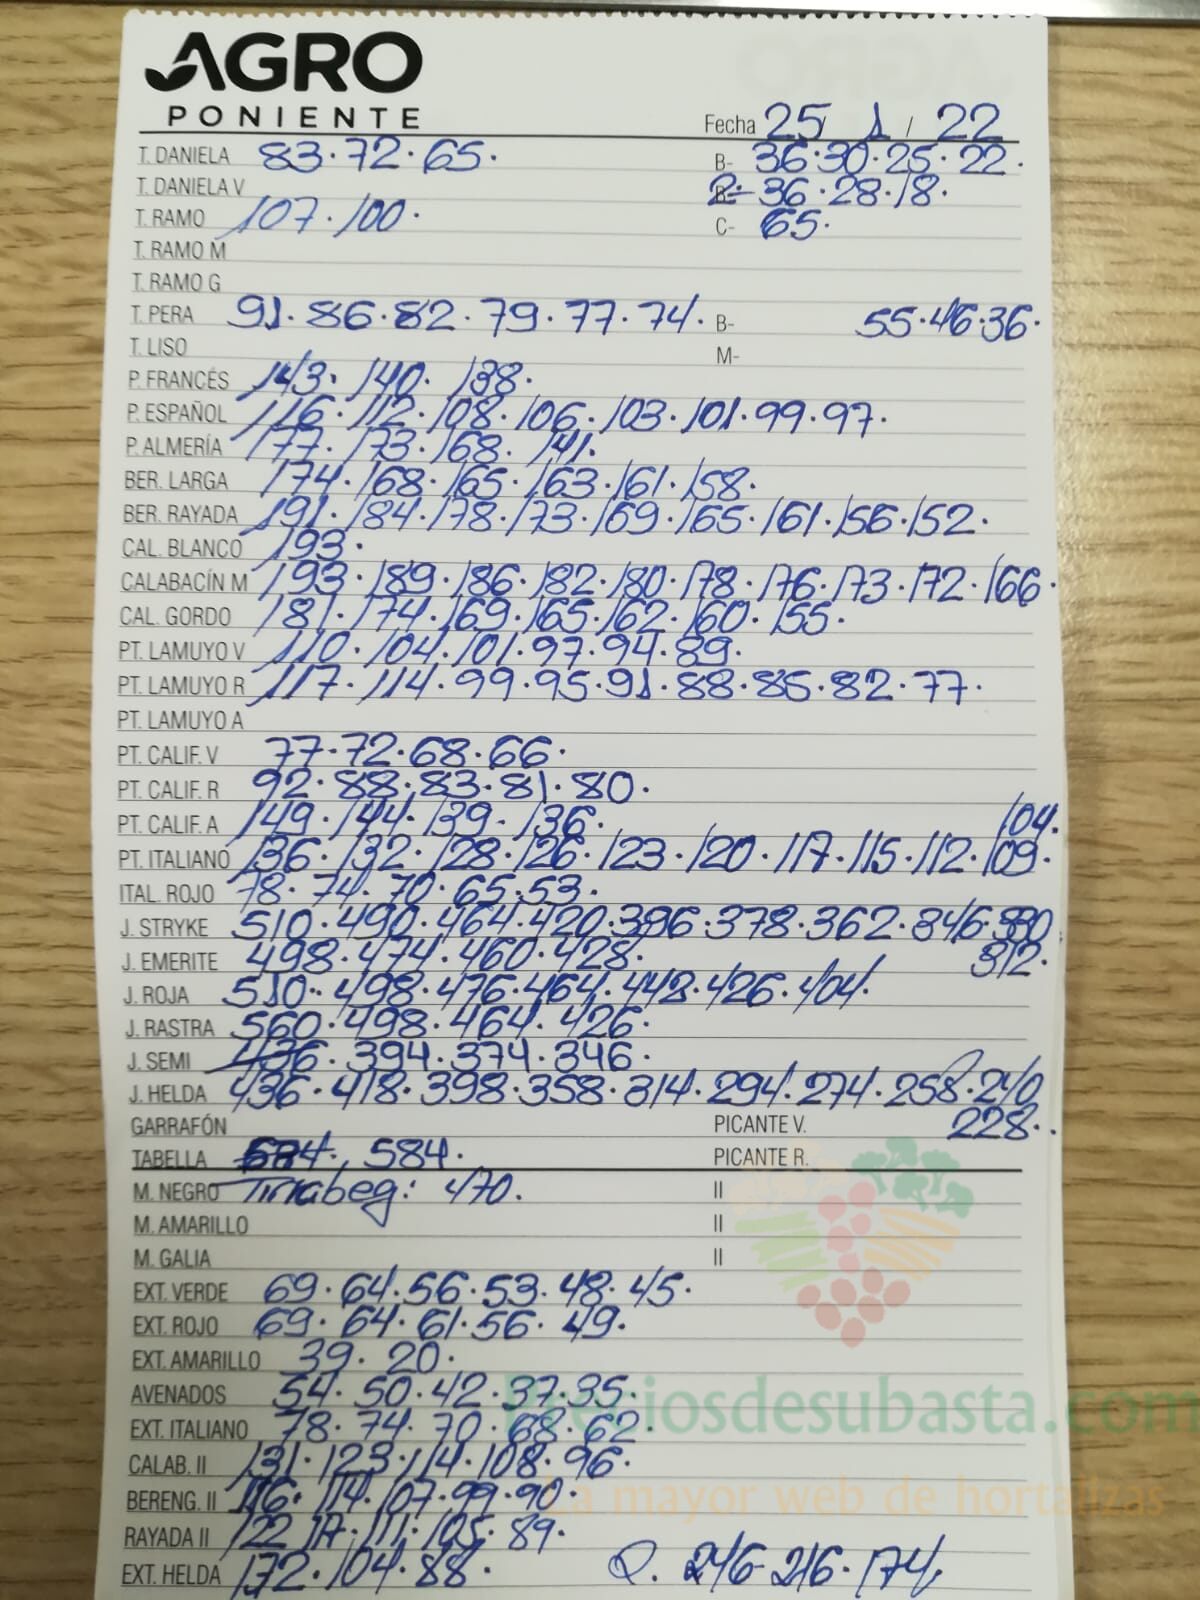 AGRO
PONIENTE
Fecha 25/ 1 / 22
T. DANIELA 83·72·65. B- 36·30·25·22.
T. DANIELA V 2- 36·28·18.
T. RAMO 107·100· C- 65·
T. RAMO M
T. RAMO G
T. PERA 91·86·82·79·77·74· B- 55·46·36·
T. LISO M-
P. FRANCÉS 143· 140· 138·
P. ESPAÑOL 116·112·108·106·103·101·99·97·
P. ALMERÍA 177·173·168·141·
BER. LARGA 174·168·165·163·161·158·
BER. RAYADA 191·184·178·173·169·165·161·156·152·
CAL. BLANCO 193·
CALABACÍN M 193·189·186·182·180·178·176·173·172·166·
CAL. GORDO 181·174·169·165·162·160·155·
PT. LAMUYO V 110·104·101·97·94·89·
PT. LAMUYO R 117·114·99·95·91·88·85·82·77·
PT. LAMUYO A
PT. CALIF. V 77·72·68·66·
PT. CALIF. R 92·88·83·81·80·
PT. CALIF. A 149·144·139·136· 104·
PT. ITALIANO 136·132·128·126·123·120·117·115·112·109·
ITAL. ROJO 78·74·70·65·53·
J. STRYKE 510·490·464·420·396·378·362·346·330
J. EMERITE 498·474·460·428· 312·
J. ROJA 510·498·476·464·448·426·404·
J. RASTRA 560·498·464·426·
J. SEMI 436·394·374·346·
J. HELDA 436·418·398·358·314·294·274·258·240
GARRAFÓN PICANTE V. 228··
TABELLA 584· PICANTE R.
M. NEGRO Tirrabeq: 470. II
M. AMARILLO II
M. GALIA II
EXT. VERDE 69·64·56·53·48·45·
EXT. ROJO 69·64·61·56·49·
EXT. AMARILLO 39·20·
AVENADOS 54·50·42·37·35·
Preciosdesubasta.com
EXT. ITALIANO 78·74·70·68·62·
CALAB. II 131·123·114·108·96·
BERENG. II 116·114·107·99·90·
La mayor web de hortalizas
RAYADA II 122·117·111·105·89·
EXT. HELDA 172·104·88· Q. 246·216·174·